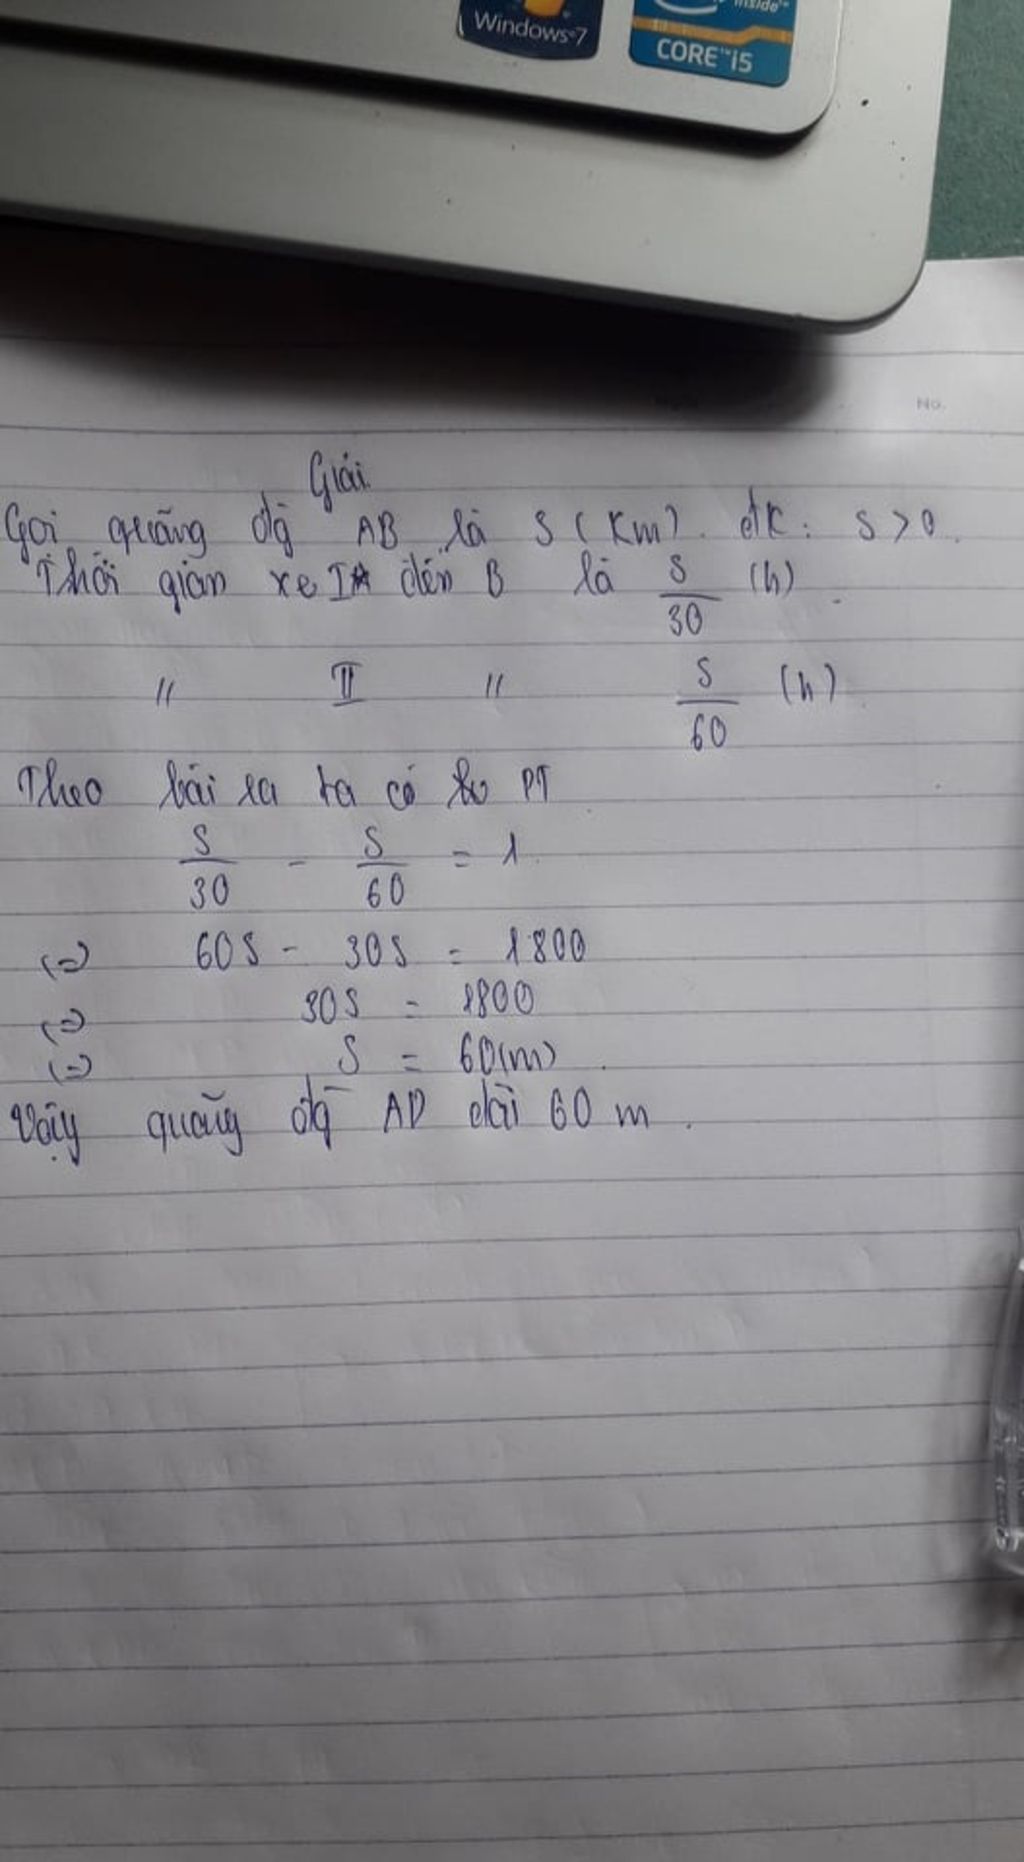 Windows 7
inside™
CORE™ i5
No.
Giải
Gọi quãng đg AB là S (Km). đk: S > 0.
Thời gian xe I đến B là S/30 (h).
" II " S/60 (h)
Theo bài ra ta có PT
S/30 - S/60 = 1
(=) 60S - 30S = 1800
(=) 30S = 1800
(=) S = 60(m).
Vậy quãng đg AD dài 60 m.